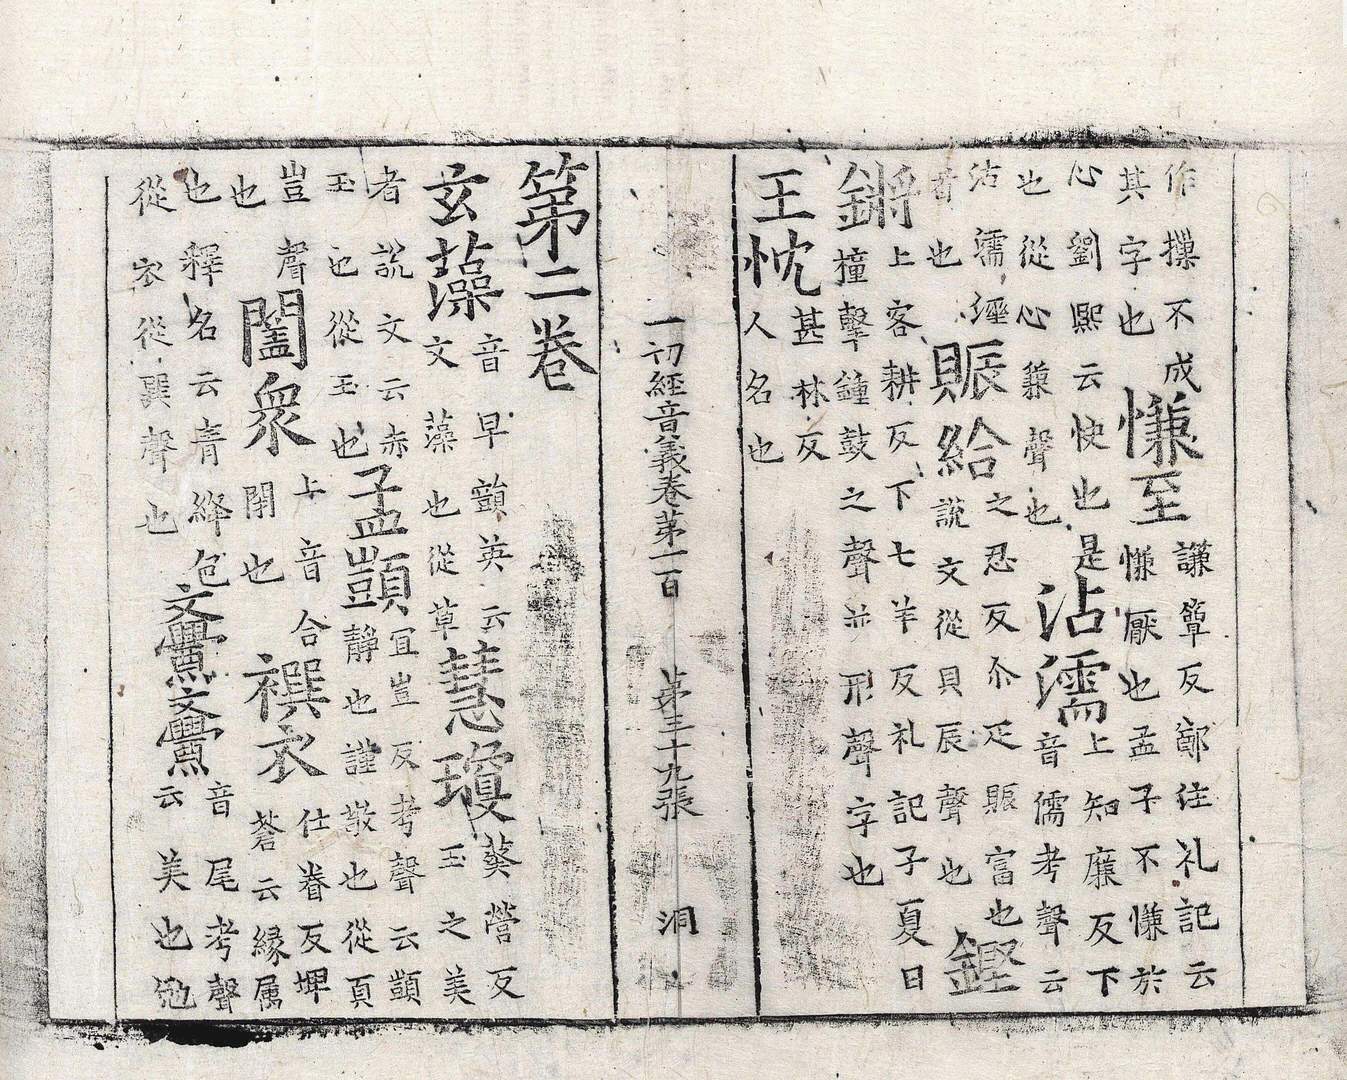 作攥不成其字也慊至謙簟反鄭注礼記云慊厭也孟子不慊於
心劉熙云快也是也從心蒹聲也沾濡上知廉反下音儒考聲云
沾濡經旹也賑給之忍反尒疋賑富也說文從貝辰聲也鏗
鏘上客耕反下七羊反礼記子夏曰撞擊鐘鼓之聲並形聲字也
王忱甚林反人名也
一切經音義卷第一百 第三十九張 洞
第二卷
玄藻音早顗英云文藻也從草慧瓊葵營反玉之美
者說文云赤玉也從玉也孟顗冝豈反考聲云顗靜也謹敬也從頁
豈聲也闔衆上音合閇也襈衣仕眷反埤蒼云緣属
也釋名云青絳包從衣從巽聲也斖斖音尾考聲云美也勉